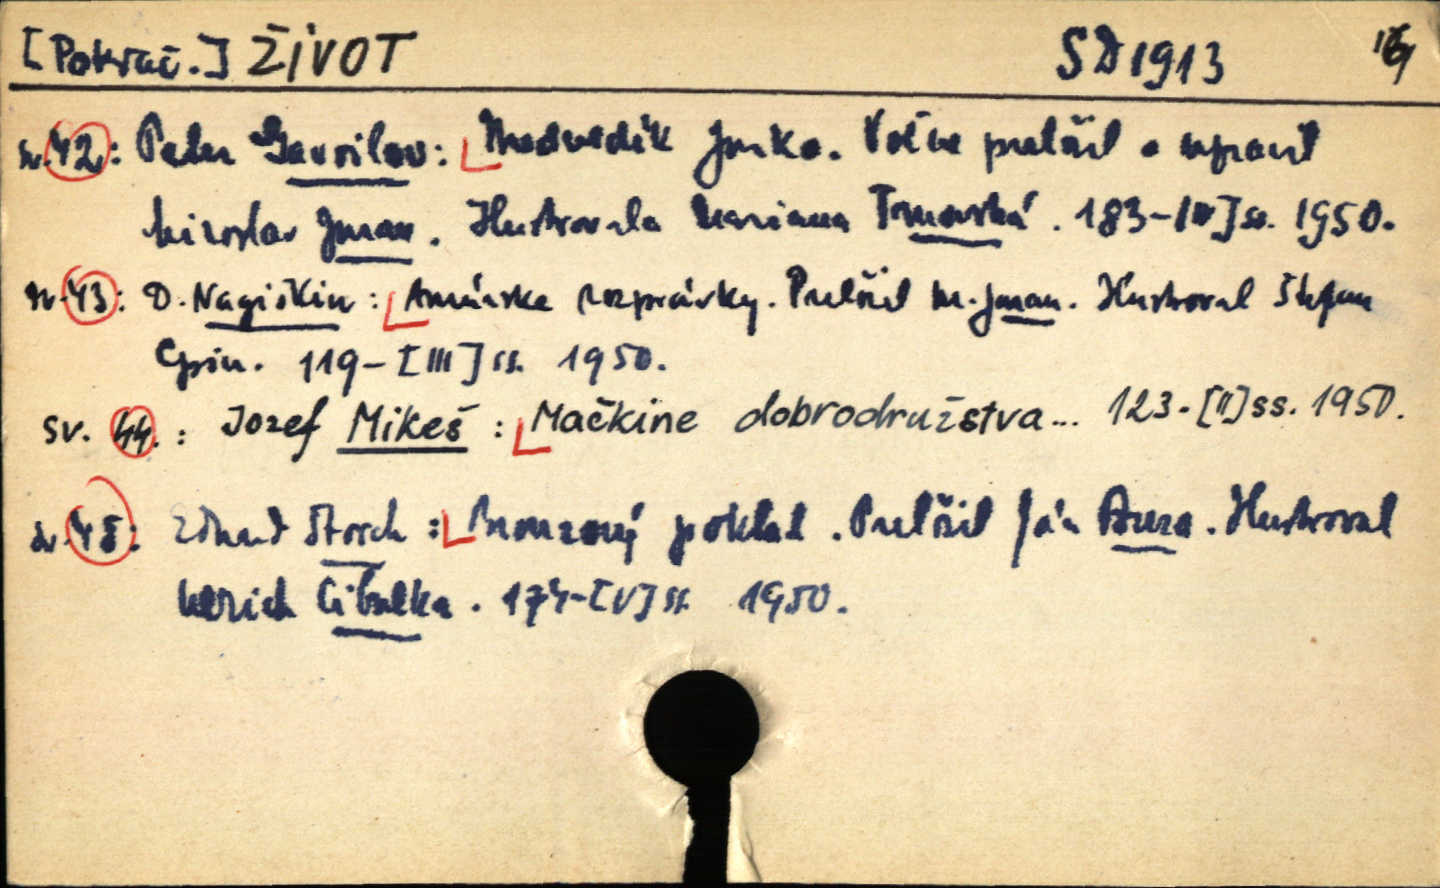 [Pokrač.] ŽIVOT SD 1913
sv. 42: Peter Gavrilov: Medvedík Jurko. Voľne preložil a upravil
Miroslav Jurman. Ilustrovala Mariana Trnovská. 183-[IV] ss. 1950.
sv. 43: D. Nagiškin: Amúrske rozprávky. Preložil M. Jurman. Ilustroval Štefan
Cpin. 119-[III] ss. 1950.
sv. 44.: Jozef Mikeš: Mačkine dobrodružstva... 123-[II] ss. 1950.
sv. 45: Eduard Štorch: Bronzový poklad. Preložil Ján Buzo. Ilustroval
Ulrich Cibulka. 174-[V] ss. 1950.